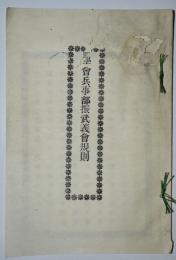 會兵事部振武義會規則